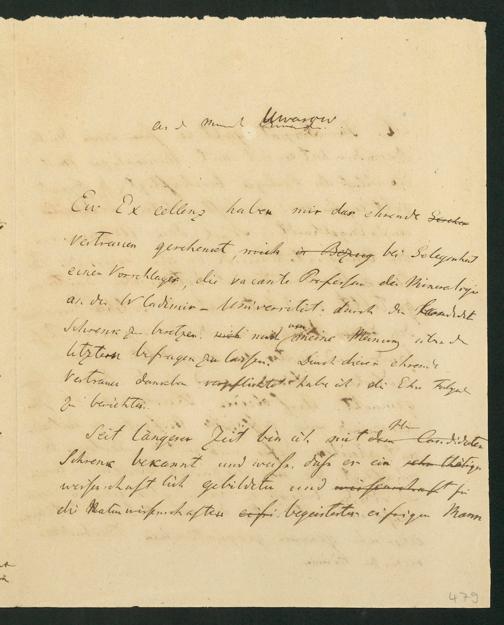 an d Minist Uwarow
Ew Excellenz haben mir das ehrende
Vertrauen geschenkt, mich in Bezug bei Gelegenheit
eines Vorschlages, die vacante Professur der Mineralogie
a. der Wladimir-Universität durch den Kandidat
Schrenk zu besetzen. mich nach um meine Meinung
letztern befragen zu lassen. Durch dieses ehrende
Vertrauen dankbar verpflichtet habe ich die Ehre Folgend
zu berichten.
Seit längerer Zeit bin ich mit dem Hn Candidaten
Schrenk bekannt und weiß, daß er ein sehr thätiger
wissenschaftlich gebildeter und wissenschaft für
die Naturwissenschaften eifri begeisterter eifriger Mann
479